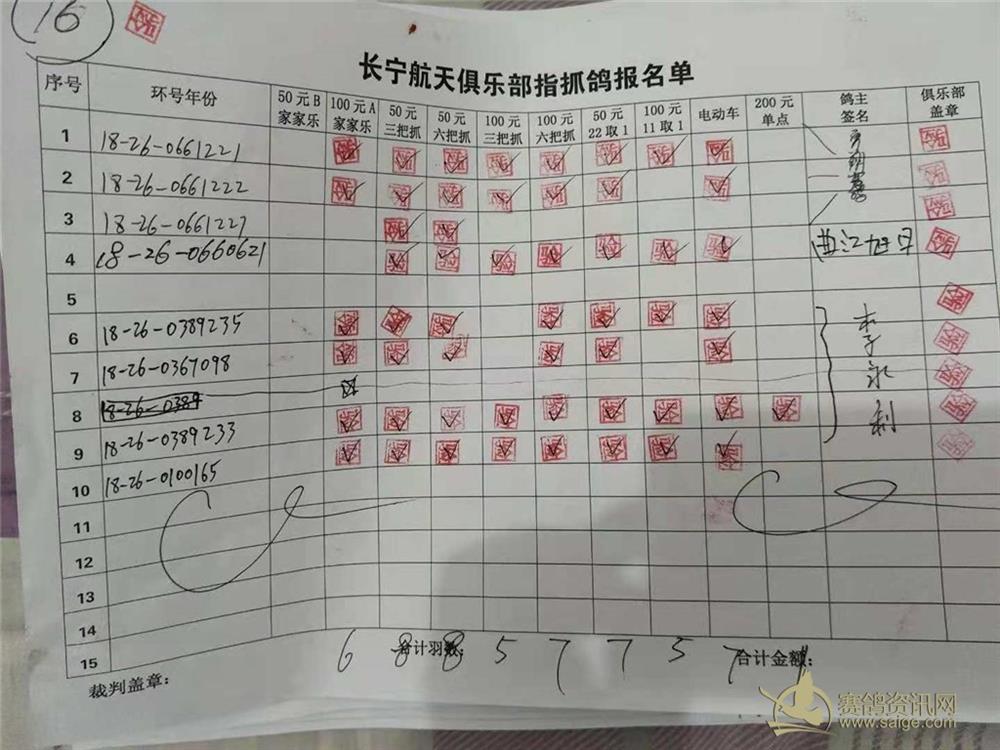 16
长宁航天俱乐部指抓鸽报名单
序号 环号年份 50元B家家乐 100元A家家乐 50元三把抓 50元六把抓 100元三把抓 100元六把抓 50元22取1 100元11取1 电动车 200元单点 鸽主签名 俱乐部盖章
1 18-26-0661221
2 18-26-0661222
3 18-26-0661227
4 18-26-0660621
5
6 18-26-0389235
7 18-26-0367098
8 18-26-0389
9 18-26-0389233
10 18-26-0100165
李永利
11
12
13
14
15
裁判盖章: 合计羽数: 合计金额:
6 8 8 5 7 7 5 7 1
赛鸽资讯网
www.saige.com